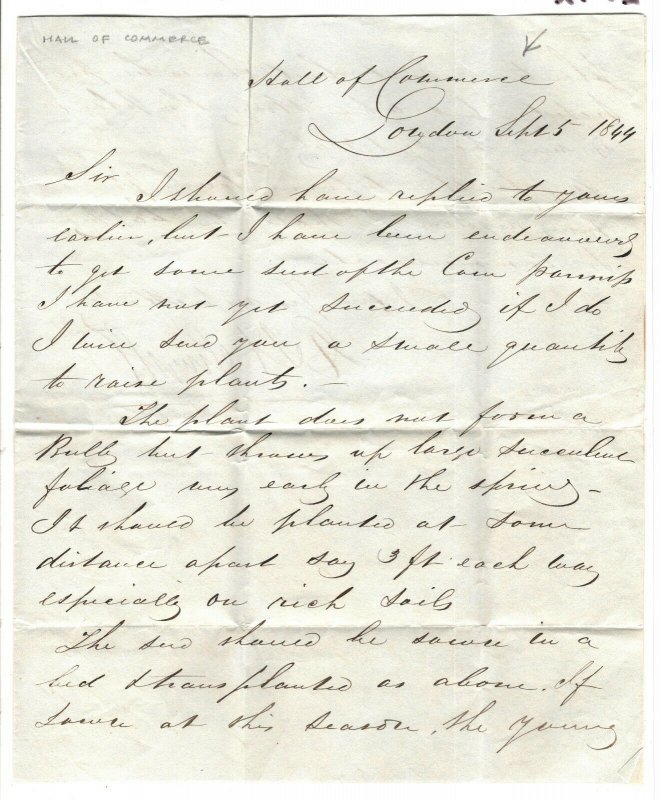 HALL OF COMMERCE
Hall of Commerce
London Sept 5 1844
Sir
I should have replied to yours
earlier, but I have been endeavoured
to get some seed of the Cow parsnip
I have not yet succeeded, if I do
I will send you a small quantity
to raise plants. —
The plant does not form a
Bulb, but throws up large succulent
foliage very early in the spring —
It should be planted at some
distance apart say 3 ft each way
especially on rich soils
The seed should be sown in a
bed & transplanted as above. If
sown at this season, the young